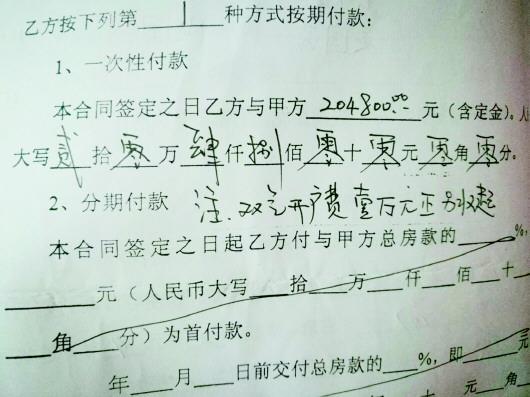 乙方按下列第 1 种方式按期付款:
1、一次性付款
本合同签定之日乙方与甲方 204800.00 元(含定金)。人
大写 贰 拾 零 万 肆 仟 捌 佰 零 十 零 元 零 角 零 分。
2、分期付款 注.双气开户费壹万元正另收起
本合同签定之日起乙方付与甲方总房款的 %,
元(人民币大写 拾 万 仟 佰 十
角 分)为首付款。
年 月 日前交付总房款的 %,即 元
元 角